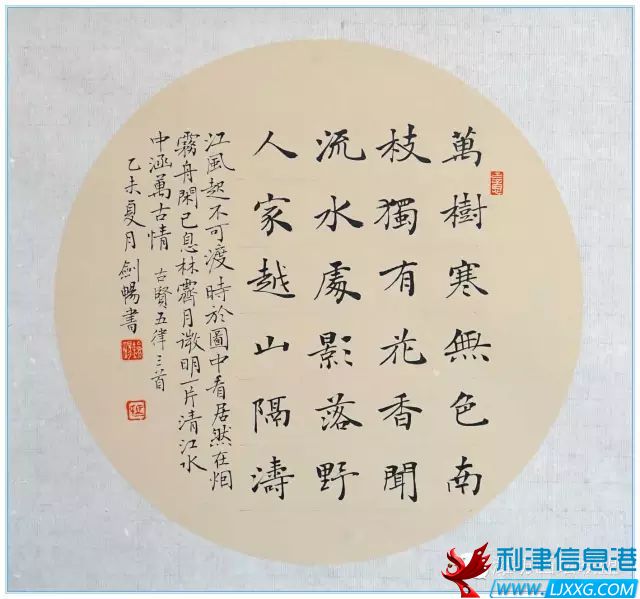 萬樹寒無色南
枝獨有花香聞
流水處影落野
人家越山隔濤
江風起不可渡時於圖中看居然在烟
霧舟閑已息林霽月微明一片清江水
中涵萬古情 古賢五律三首
乙未夏月 劍暢書
利津信息港
WWW.LJXXG.COM